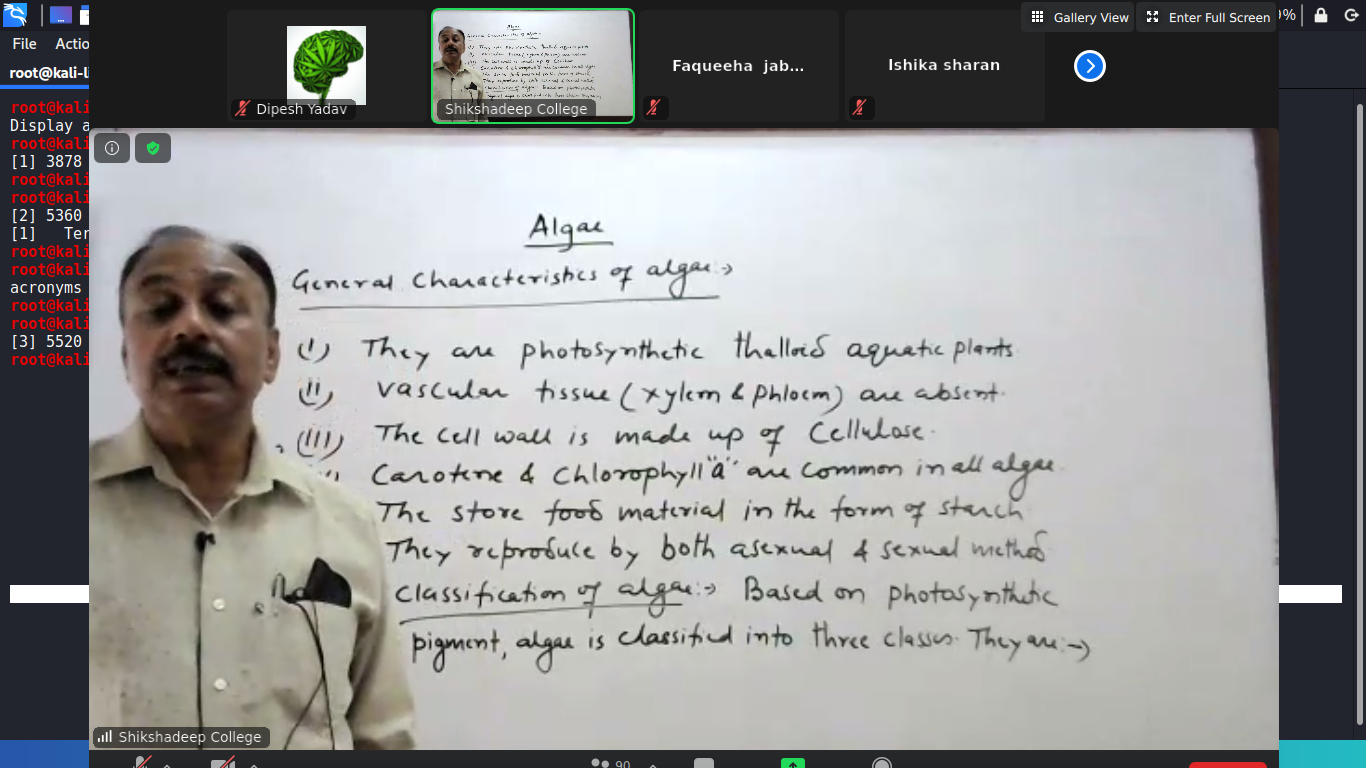 File
Actio
root@kali-li
root@kali
Display a
root@kali
[1] 3878
root@kali
root@kali
[2] 5360
[1] Ter
root@kali
root@kali
acronyms
root@kali
root@kali
[3] 5520
root@kali
Dipesh Yadav
Shikshadeep College
Faqueeha jab...
Ishika sharan
Gallery View
Enter Full Screen
9%
Algae
General Characteristics of algae:→
(I) They are photosynthetic thalloid aquatic plants.
(II) Vascular tissue (xylem & phloem) are absent.
(III) The cell wall is made up of Cellulose.
Carotene & Chlorophyll "a" are common in all algae.
The store food material in the form of starch
They reproduce by both asexual & sexual method
Classification of algae:→ Based on photosynthetic
pigment, algae is classified into three classes. They are:→
Shikshadeep College
90